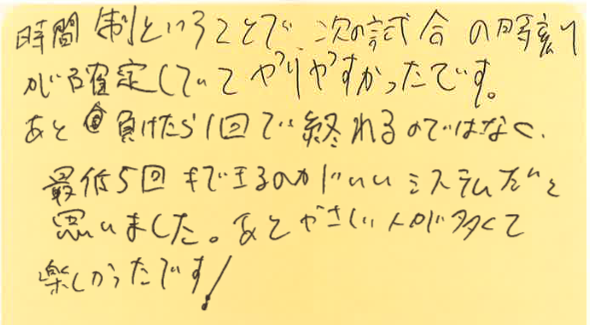 時間制ということで、次の試合の時刻
が確定していてやりやすかったです。
あと負けたら1回で終れるのではなく、
最低5回までできるのがいいシステムだと
思いました。あとやさしい人が多くて
楽しかったです!